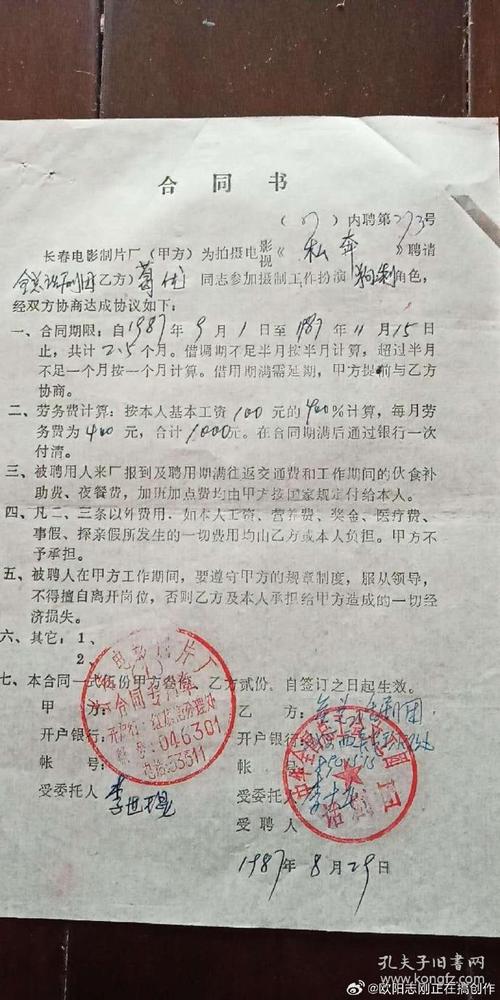 合同书
(87)内聘第273号
长春电影制片厂(甲方)为拍摄电影视《私奔》聘请
全总话剧团(乙方)葛优 同志参加摄制工作扮演 角色，
经双方协商达成协议如下：
一、合同期限：自1987年9月1日至1987年11月15日
止，共计2.5个月。借调期不足半月按半月计算，超过半月
不足一个月按一个月计算。借用期满需延期，甲方提前与乙方
协商。
二、劳务费计算：按本人基本工资100元的400%计算，每月劳
务费为400元，合计1000元。在合同期满后通过银行一次
付清。
三、被聘用人来厂报到及聘用期满往返交通费和工作期间的伙食补
助费、夜餐费，加班加点费均由甲方按国家规定付给本人。
四、凡二、三条以外费用．如本人工资、营养费、奖金、医疗费、
事假、探亲假所发生的一切费用均由乙方或本人负担。甲方不
予承担。
五、被聘人在甲方工作期间，要遵守甲方的规章制度，服从领导，
不得擅自离开岗位，否则乙方及本人承担给甲方造成的一切经
济损失。
六、其它：1、
2、
七、本合同一式伍份甲方叁份，乙方贰份，自签订之日起生效。
甲方：
开户银行：
帐号：
受委托人
长春电影制片厂
合同专用章
开户行：红旗街办理处
帐号：046301
电话：53511
乙方：全总话剧团
开户银行：
帐号：
受委托人
受聘人
1987年8月29日
孔夫子旧书网
@欧阳志刚正在搞创作